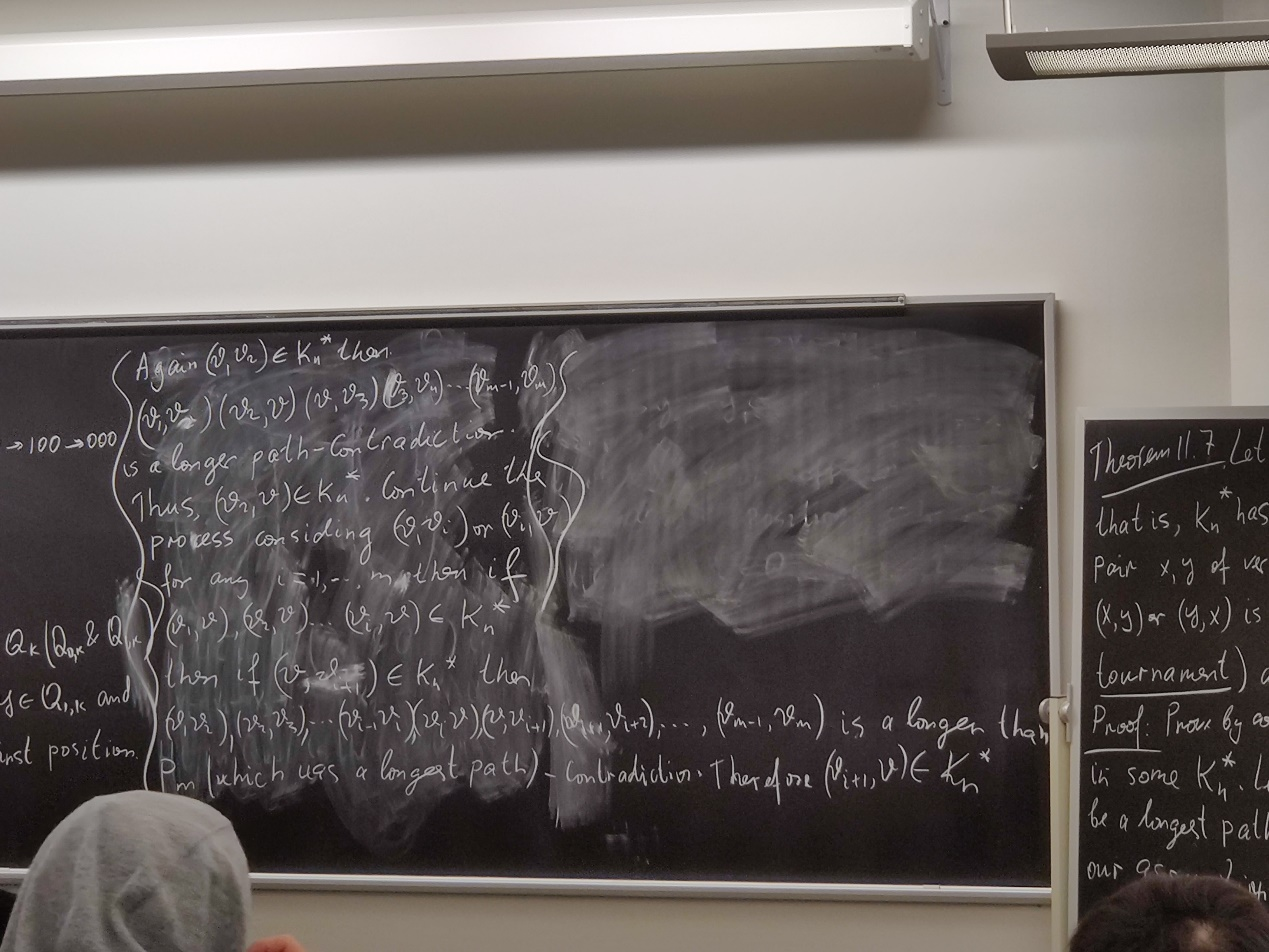 →100→000
Q_K (Q_{0,K} & Q_{1,K}
y∈Q_{1,K} and
position.
Again (v_1,v_2)∈K_n^* then
(v_1,v_2)(v_2,v)(v,v_3)(v_3,v_4)...(v_{m-1},v_m)
is a longer path-Contradiction.
Thus, (v_2,v)∈K_n^*. Continue the
process considing (v,v_i) or (v_i,v)
for any i=1,..., m, then if
(v_1,v),(v_2,v)... (v_i,v) ∈ K_n^*
then if (v,v_{i+1}) ∈ K_n^* then
(v_1,v_2),(v_2,v_3),...(v_{i-1},v_i)(v_i,v)(v,v_{i+1}),(v_{i+1},v_{i+2}),..., (v_{m-1},v_m) is a longer than
P_m (which was a longest path) - Contradiction. Therefore (v_{i+1},v)∈ K_n^*
Theorem 11.7. Let
that is, K_n^* has
pair x,y of
(x,y) or (y,x) is
tournament)
Proof: Prove by
in some K_n^*.
be a longest path
our